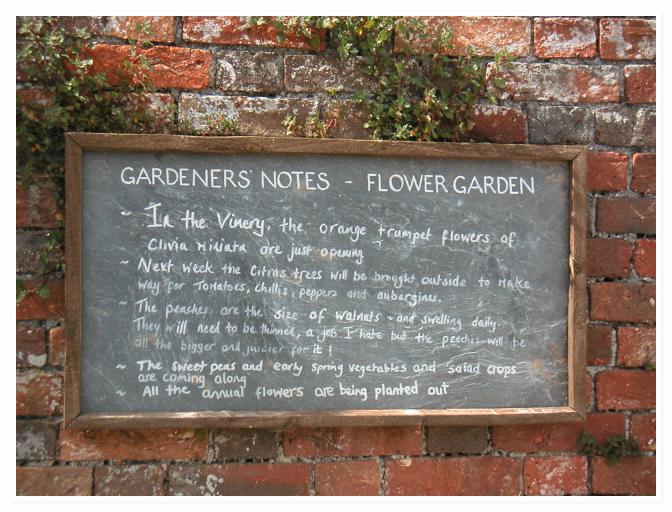 GARDENERS' NOTES - FLOWER GARDEN
~ In the Vinery, the orange trumpet flowers of
Clivia Miniata are just opening
~ Next week the Citrus trees will be brought outside to make
way for Tomatoes, chillis, peppers and aubergines.
~ The peaches are the size of walnuts - and swelling daily.
They will need to be thinned, a job I hate but the peaches will be
all the bigger and juicier for it!
~ The sweet peas and early spring vegetables and salad crops
are coming along
~ All the annual flowers are being planted out